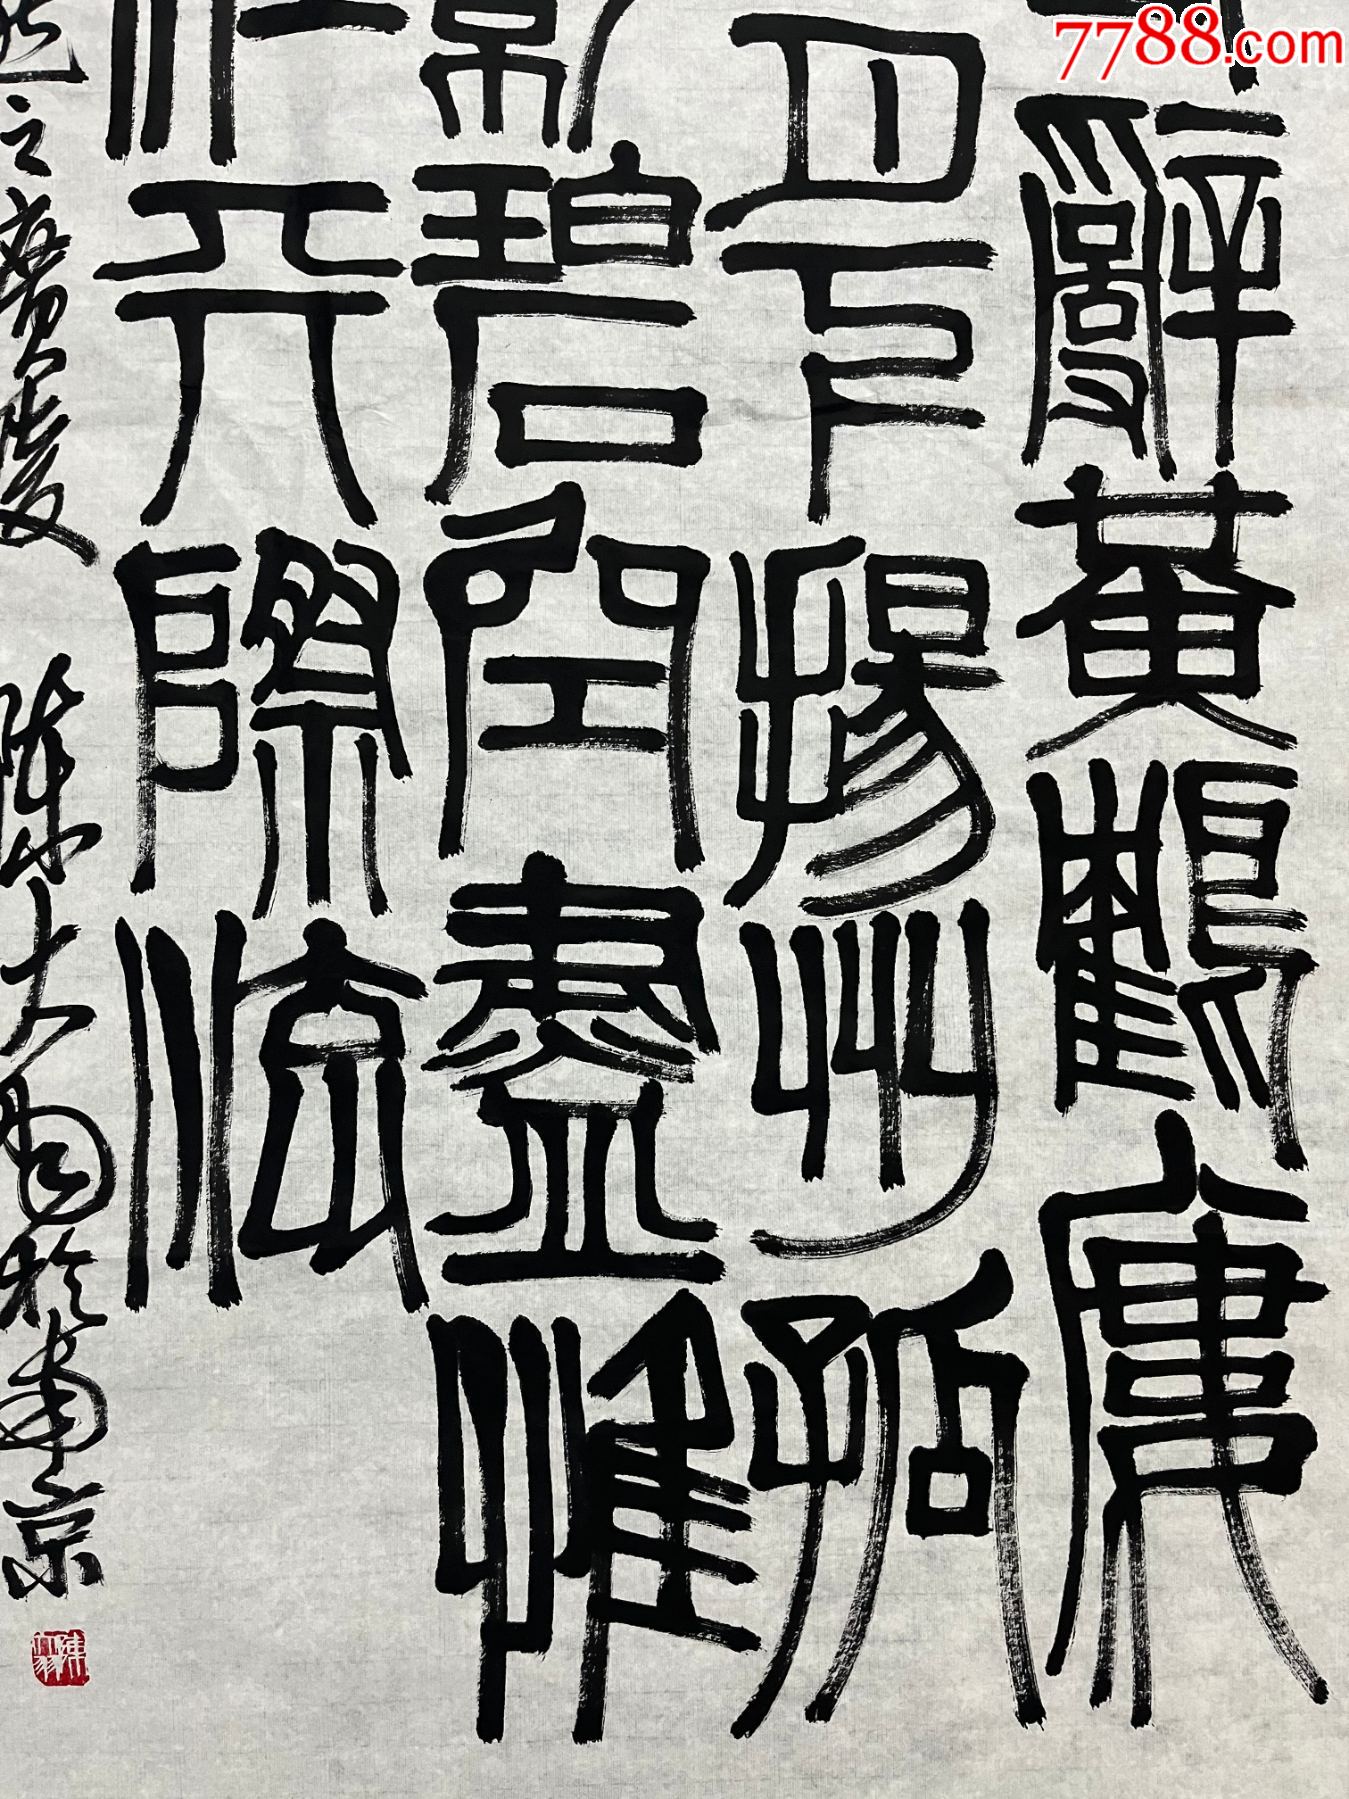 7788.com
辭黃鶴樓
月下揚州孤
影碧空盡惟
江天際流
然之廣陵 陳大羽於南京